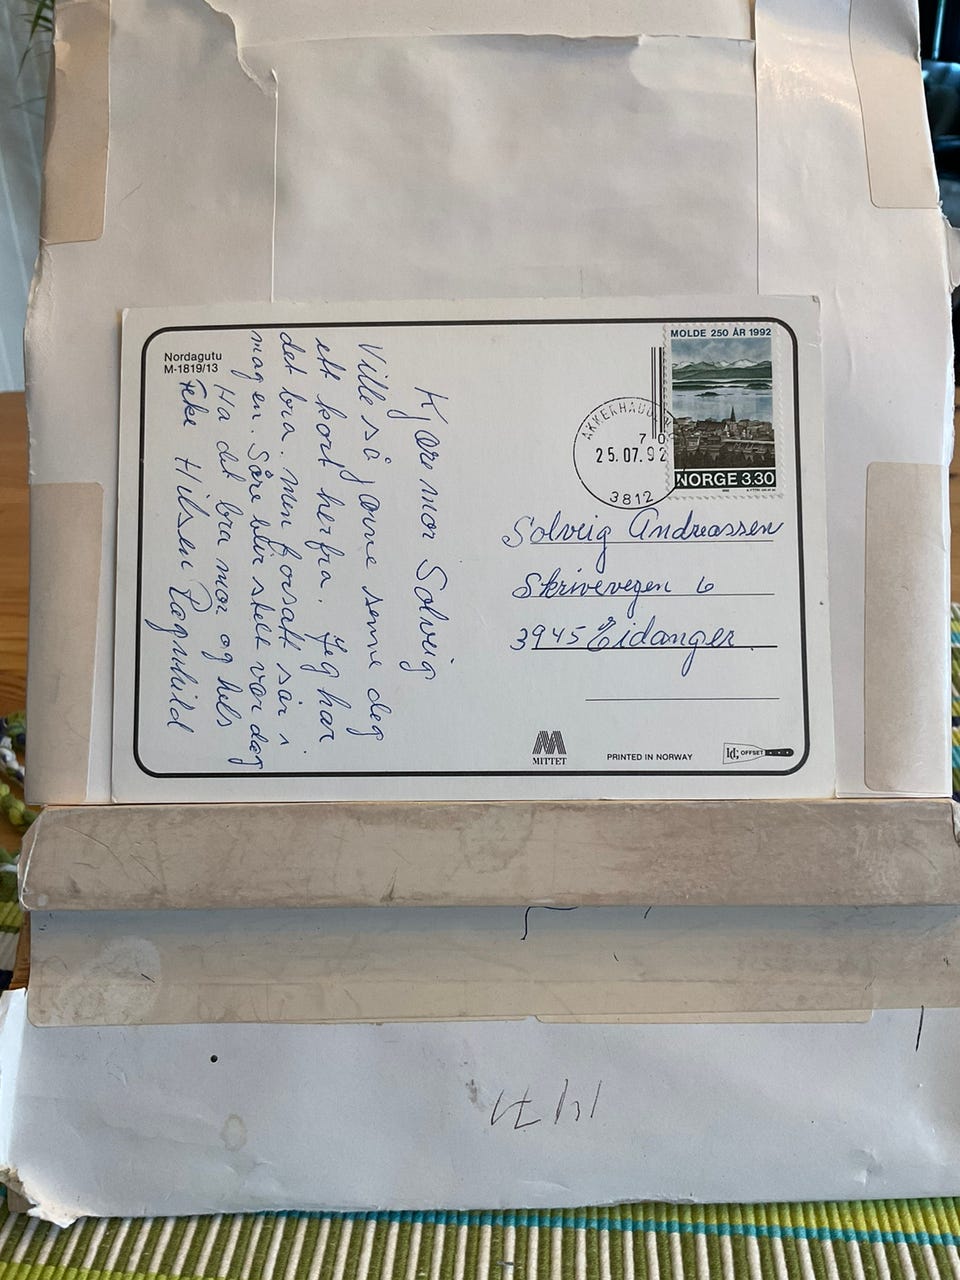 Nordagutu
M-1819/13
Kjære mor Solveig
Ville så gjærne senne deg
ett kort herfra. Jeg har
det bra. men forsatt sår i
magen. Såre blir stelt vær dag
Ha det bra mor og hels
Teke Hilsen Ragnhild
MOLDE 250 ÅR 1992
NORGE 3.30
AKKERHAUGEN
25.07.92
3812
Solveig Andreassen
Skrivevegen 6
3945 Eidanger
MITTET
PRINTED IN NORWAY
OFFSET